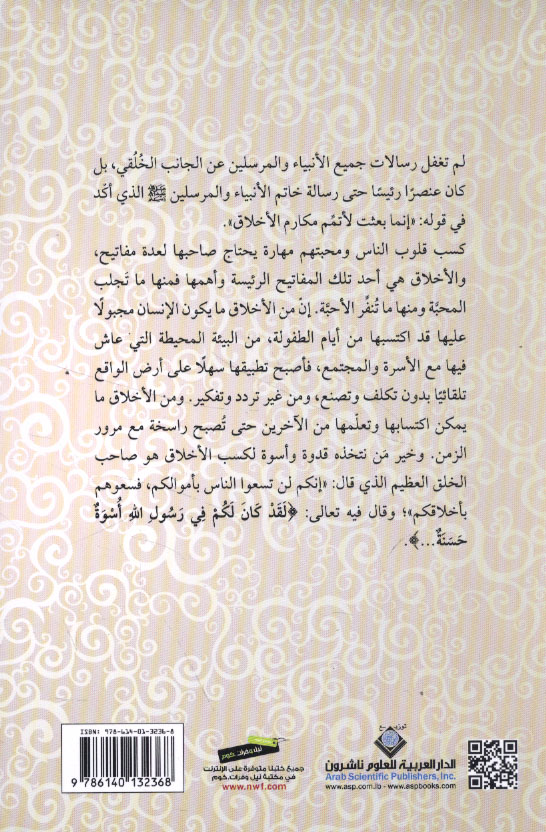 لم تغفل رسالات جميع الأنبياء والمرسلين عن الجانب الخُلُقي، بل
كان عنصرًا رئيسًا حتى رسالة خاتم الأنبياء والمرسلين ﷺ الذي أكّد
في قوله: «إنما بعثت لأتمّم مكارم الأخلاق».
كسب قلوب الناس ومحبتهم مهارة يحتاج صاحبها لعدة مفاتيح،
والأخلاق هي أحد تلك المفاتيح الرئيسة وأهمها فمنها ما تَجلب
المحبَّة ومنها ما تُنفِّر الأحبَّة. إنّ من الأخلاق ما يكون الإنسان مجبولًا
عليها قد اكتسبها من أيام الطفولة، من البيئة المحيطة التي عاش
فيها مع الأسرة والمجتمع، فأصبح تطبيقها سهلًا على أرض الواقع
تلقائيًا بدون تكلف وتصنع، ومن غير تردد وتفكير. ومن الأخلاق ما
يمكن اكتسابها وتعلّمها من الآخرين حتى تُصبح راسخة مع مرور
الزمن. وخير مَن نتخذه قدوة وأسوة لكسب الأخلاق هو صاحب
الخلق العظيم الذي قال: «إنكم لن تسعوا الناس بأموالكم، فسعوهم
بأخلاقكم»؛ وقال فيه تعالى: ﴿لَقَدْ كَانَ لَكُمْ فِي رَسُولِ اللهِ أُسْوَةٌ
حَسَنَةٌ...﴾.
ISBN: 978-614-01-3236-8
9 786140 132368
نيل وفرات.كوم
جميع كتبنا متوفرة على الإنترنت
في مكتبة نيل وفرات.كوم
www.nwf.com
توزيع
الدار العربية للعلوم ناشرون
Arab Scientific Publishers, Inc.
www.asp.com.lb - www.aspbooks.com